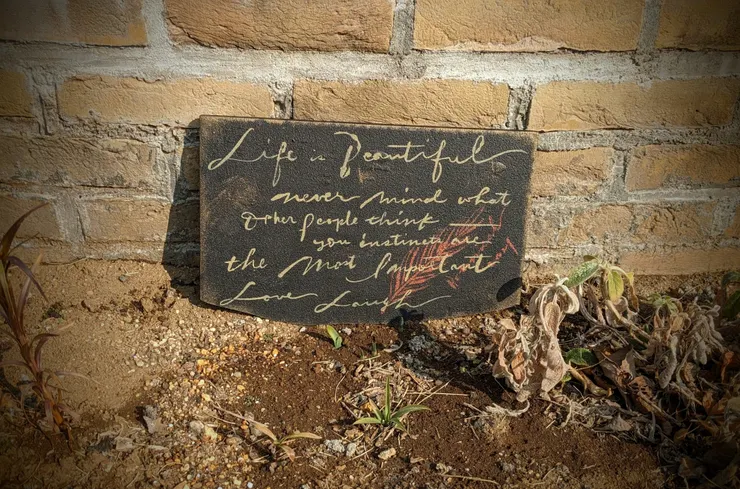 Life is Beautiful
never mind what
other people think
you instinct are
the Most Important
Love Laugh